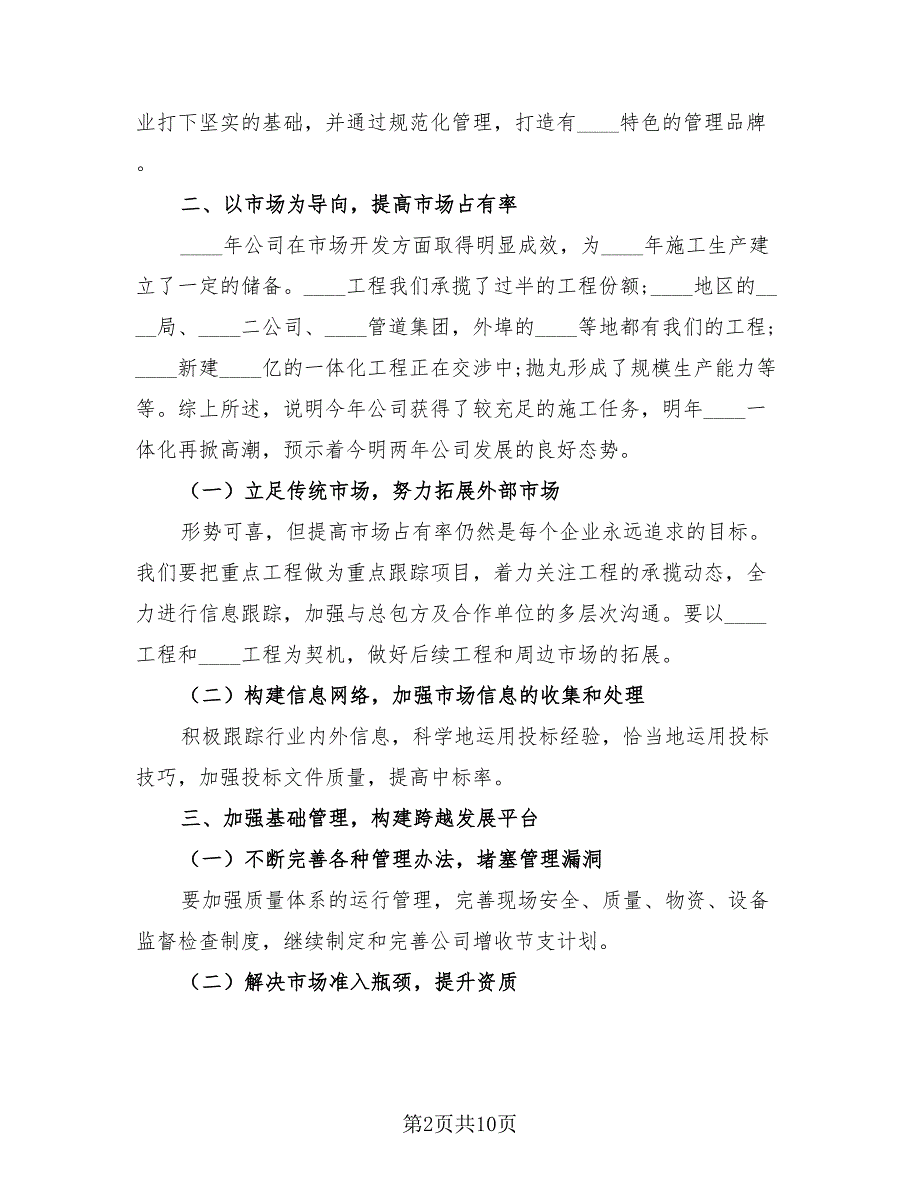 业打下坚实的基础，并通过规范化管理，打造有____特色的管理品牌
。
二、以市场为导向，提高市场占有率
____年公司在市场开发方面取得明显成效，为____年施工生产建
立了一定的储备。____工程我们承揽了过半的工程份额;____地区的__
__局、____二公司、____管道集团，外埠的____等地都有我们的工程;
____新建____亿的一体化工程正在交涉中;抛丸形成了规模生产能力等
等。综上所述，说明今年公司获得了较充足的施工任务，明年____一
体化再掀高潮，预示着今明两年公司发展的良好态势。
（一）立足传统市场，努力拓展外部市场
形势可喜，但提高市场占有率仍然是每个企业永远追求的目标。
我们要把重点工程做为重点跟踪项目，着力关注工程的承揽动态，全
力进行信息跟踪，加强与总包方及合作单位的多层次沟通。要以____
工程和____工程为契机，做好后续工程和周边市场的拓展。
（二）构建信息网络，加强市场信息的收集和处理
积极跟踪行业内外信息，科学地运用投标经验，恰当地运用投标
技巧，加强投标文件质量，提高中标率。
三、加强基础管理，构建跨越发展平台
（一）不断完善各种管理办法，堵塞管理漏洞
要加强质量体系的运行管理，完善现场安全、质量、物资、设备
监督检查制度，继续制定和完善公司增收节支计划。
（二）解决市场准入瓶颈，提升资质
第2页共10页